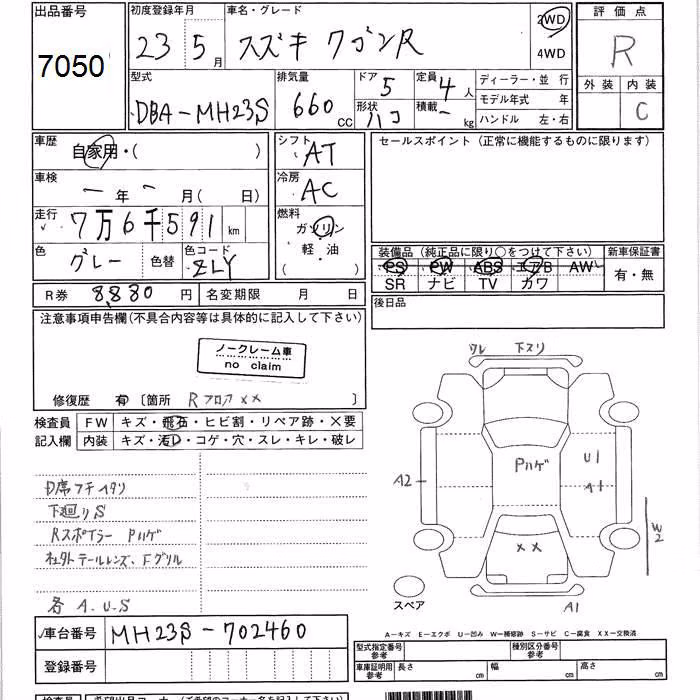 出品番号
7050
初度登録年月
23 5月
車名・グレード
スズキ ワゴンR
2WD
4WD
評価点
R
外装 内装
C
型式
DBA-MH23S
排気量
660 CC
ドア 5
形状 ハコ
定員 4人
積載 - kg
ディーラー・並行
モデル年式 年
ハンドル 左・右
車歴
自家用・( )
車検
- 年 - 月( 日)
走行
7万6千591 km
色
グレー
色替
色コード
ZLY
シフト
AT
冷房
AC
燃料
ガソリン
軽・油
( )
セールスポイント(正常に機能するものに限ります)
装備品(純正品に限り○をつけて下さい)
PS PW ABS エアB AW
SR ナビ TV カワ
新車保証書
有・無
R券 8,880 円
名変期限 月 日
後日品
注意事項申告欄(不具合内容等は具体的に記入して下さい)
ノークレーム車
no claim
修復歴 有 〔箇所 Rフロア×× 〕
検査員
記入欄
FW キズ・飛石・ヒビ割・リペア跡・×要
内装 キズ・汚レ・コゲ・穴・スレ・キレ・破レ
下廻りS
Rスポイラー Pハゲ
社外テールレンズ、Fグリル
各 A.U.S
ワレ 下スリ
Pハゲ
U1
A1
A2
××
W2
スペア
A1
A-キズ E-エクボ U-凹み W-補修跡 S-サビ C-腐食 XX-交換済
車台番号 MH23S-702460
登録番号
型式指定番号
参考
種別区分番号
参考
車庫証明用
参考
長さ cm 幅 cm 高さ cm